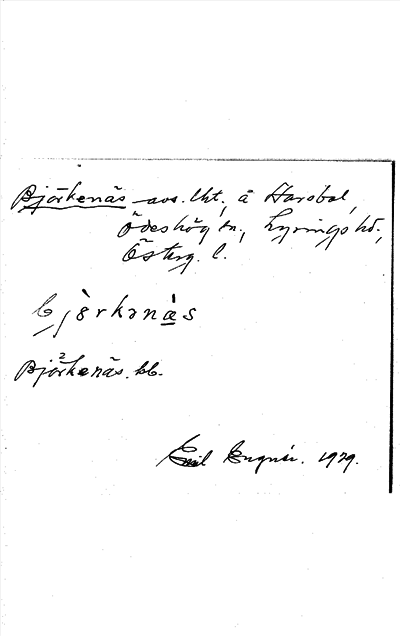 Björkenäs avs. lht., å Harsbol,
Ödeshög sn., Lysings hd.,
Österg. l.
bjö̀rkənä̀s
Björ²kenäs. kb.
Emil Engnér. 1929.